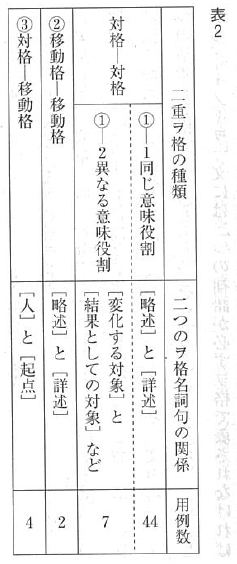 表2
二重ヲ格の種類
二つのヲ格名詞句の関係
用例数
対格―対格
①―1同じ意味役割
[略述]と[詳述]
44
①―2異なる意味役割
[変化する対象]と
[結果としての対象]など
7
②移動格―移動格
[略述]と[詳述]
2
③対格―移動格
[人]と[起点]
4